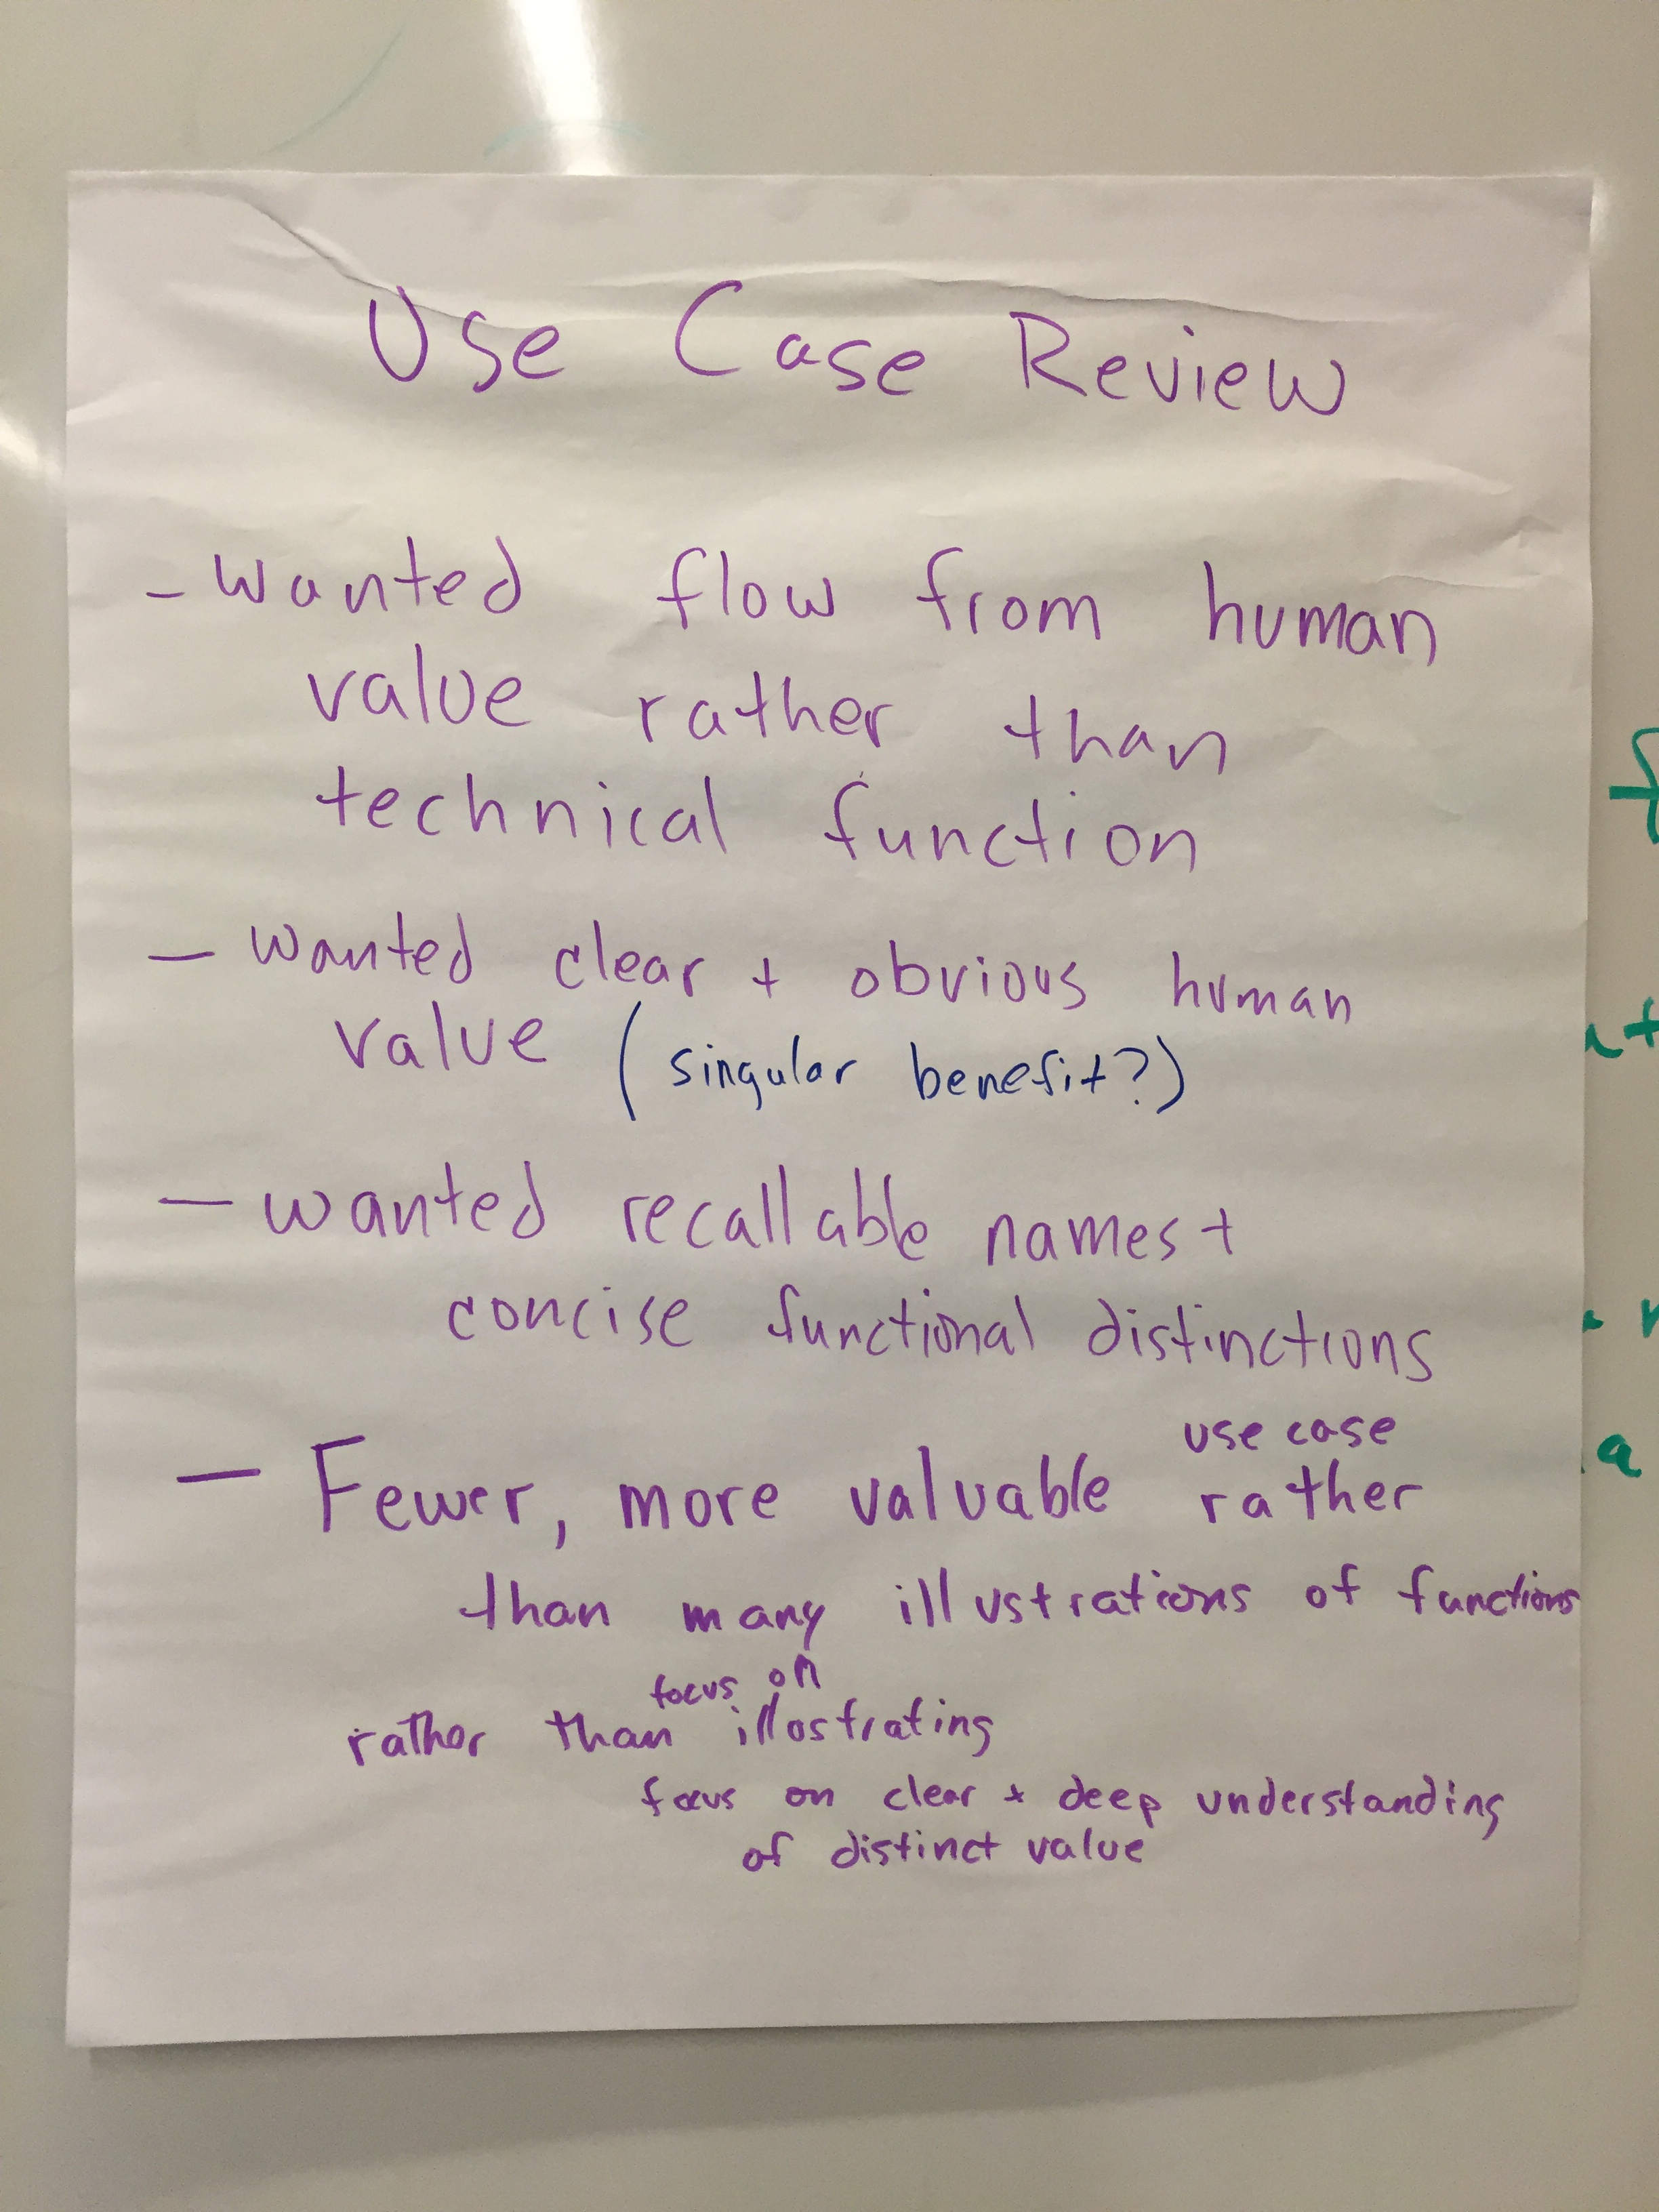 Use Case Review
- wanted flow from human
value rather than
technical function
- wanted clear + obvious human
value (singular benefit?)
- wanted recallable names +
concise functional distinctions
use case
- Fewer, more valuable rather
than many illustrations of functions
focus on
rather than illostrating
focus on clear + deep understanding
of distinct value